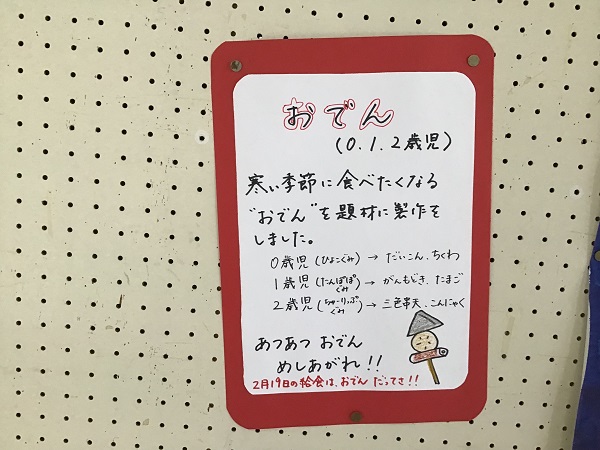 おでん
(0.1.2歳児)
寒い季節に食べたくなる
"おでん"を題材に製作を
しました。
0歳児(ひよこぐみ)→だいこん、ちくわ
1歳児(たんぽぽぐみ)→がんもどき、たまご
2歳児(ちゅーりっぷぐみ)→三色串天、こんにゃく
あつあつ おでん
めしあがれ!!
2月19日の給食は、おでん だってさ!!